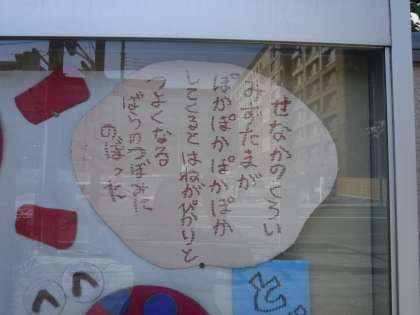 せなかのくろい
みずたまが
ぽかぽかぽかぽか
してくるとはねがぴかりと
つよくなる
ばらのつぼみに
のぼった
ど